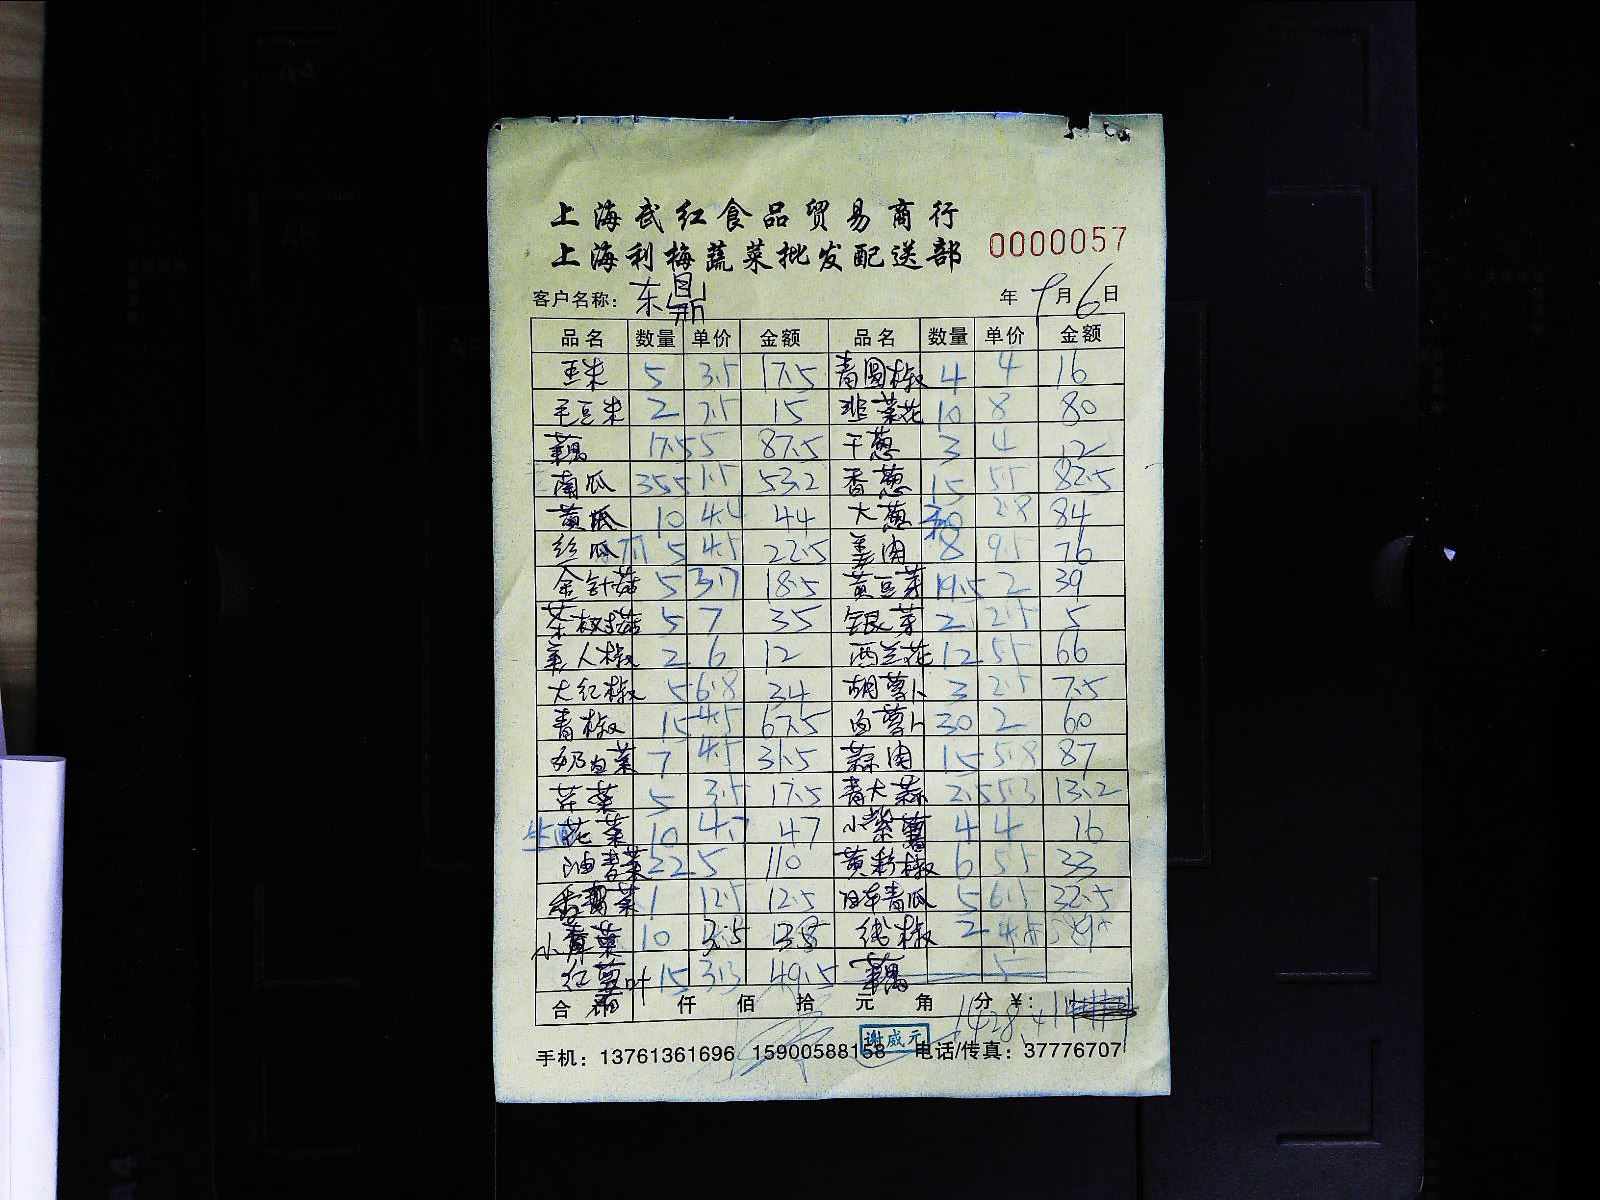 上海武红食品贸易商行
上海利梅蔬菜批发配送部 0000057
客户名称: 东鼎 年 9月6日
品名 数量 单价 金额 品名 数量 单价 金额
玉米 5 3.5 17.5 青圆椒 4 4 16
毛豆米 2 7.5 15 韭菜花 10 8 80
藕 17.5 5 87.5 干葱 3 4 12
南瓜 35.5 1.5 53.2 香葱 15 5.5 82.5
黄瓜 10 4.4 44 大葱 30 2.8 84
丝瓜 5 4.5 22.5 姜肉 8 9.5 76
金针菇 5 3.7 18.5 黄豆芽 19.5 2 39
茶树菇 5 7 35 银芽 2 2.5 5
美人椒 2 6 12 西兰花 12 5.5 66
大红椒 5 6.8 34 胡萝卜 3 2.5 7.5
青椒 15 4.5 67.5 白萝卜 30 2 60
奶白菜 7 4.5 31.5 蒜肉 15 5.8 87
芹菜 5 3.5 17.5 青大蒜 2.5 5.3 13.2
花菜 10 4.7 47 小紫薯 4 4 16
油青菜 22 5 110 黄彩椒 6 5.5 33
1 12.5 12.5 日本青瓜 5 6.5 32.5
小青菜 10 3.5 线椒 2
红薯叶 15 3.3 49.5 藕 5
合 仟 佰 拾 元 角 分 ¥: 1428.4
手机: 13761361696 15900588158 谢威元 电话/传真: 37776707